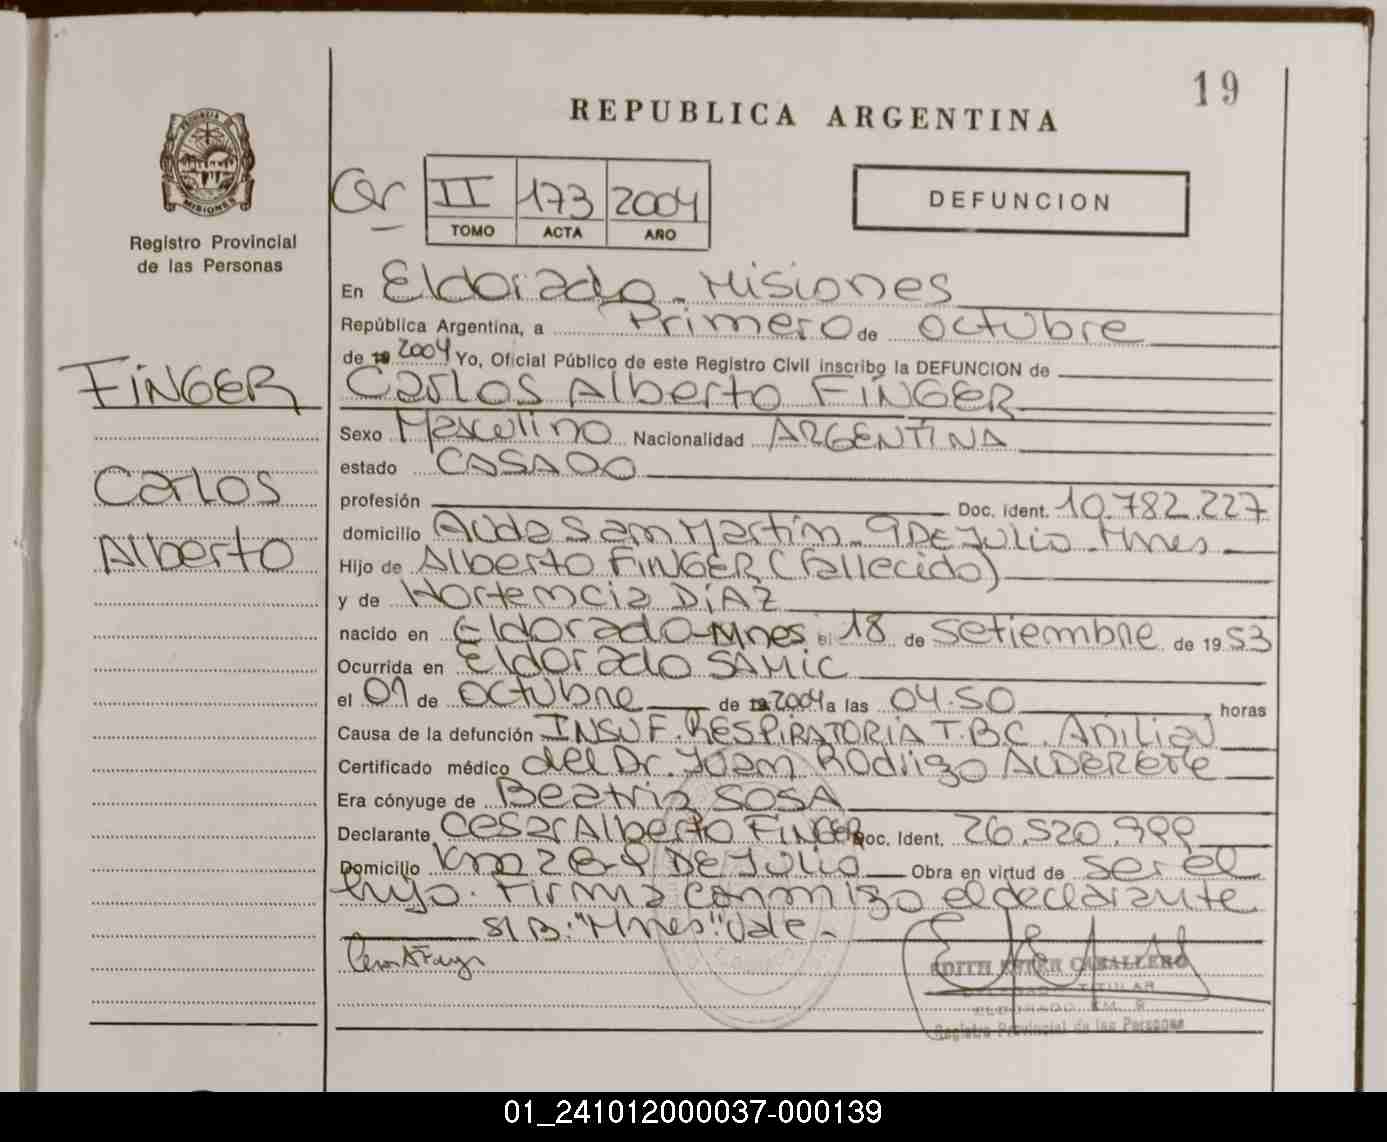 19
REPUBLICA ARGENTINA
PROVINCIA
MISIONES
Registro Provincial
de las Personas
II 173 2004
TOMO ACTA AÑO
DEFUNCION
En Eldorado - Misiones
República Argentina, a Primero de octubre
de 19 2004 Yo, Oficial Público de este Registro Civil inscribo la DEFUNCION de
FINGER
Carlos Alberto FINGER
Sexo Masculino Nacionalidad ARGENTINA
estado CASADO
Carlos
profesión Doc. ident. 10.782.227
domicilio Avda San Martín - 9 DE JULIO - Mnes
Alberto
Hijo de Alberto FINGER (fallecido)
y de Hortencia DIAZ
nacido en Eldorado - Mnes el 18 de setiembre de 1953
Ocurrida en Eldorado SAMIC
el 01 de octubre de 19 2004 a las 04.50 horas
Causa de la defunción INSUF. RESPIRATORIA T.B.C.
Certificado médico del Dr. Juan Rodrigo ALDERETE
Era cónyuge de Beatriz SOSA
Declarante Cesar Alberto FINGER Doc. Ident. 26.520.999
Domicilio Km 28 - 9 DE JULIO Obra en virtud de ser el
hijo. Firma conmigo el declarante
S/B: "Mnes" Vale -
EDITH ESTER CABALLERO
DELEGADA TITULAR
ELDORADO KM. 9
Registro Provincial de las Personas
01_241012000037-000139